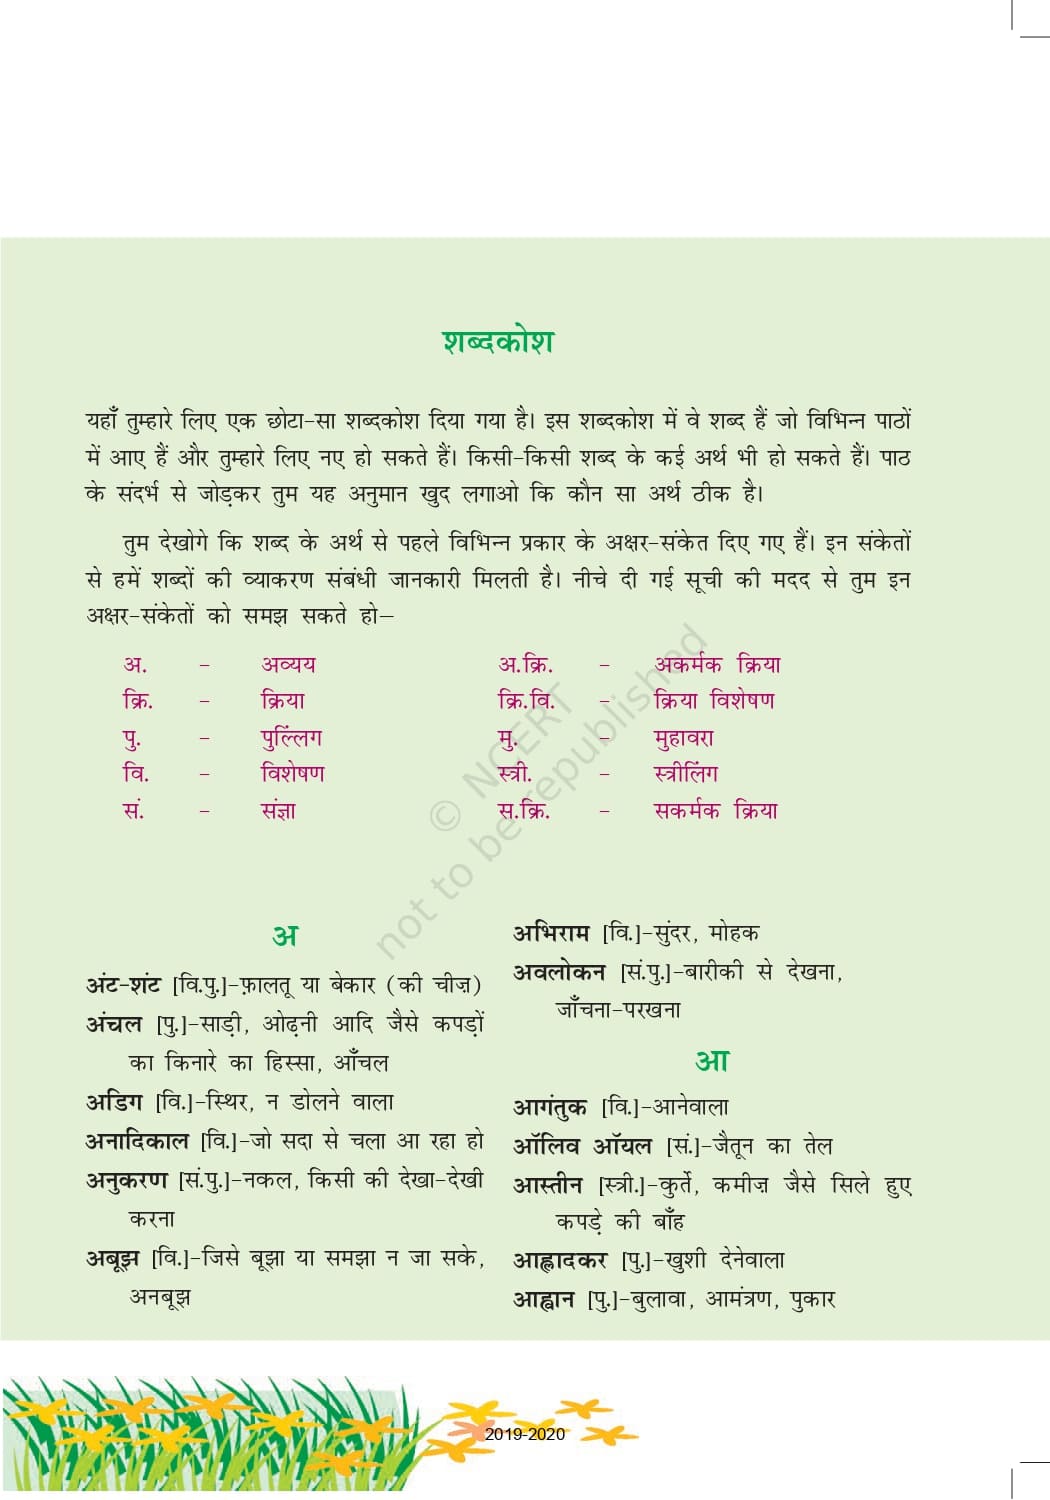 शब्दकोश
यहाँ तुम्हारे लिए एक छोटा-सा शब्दकोश दिया गया है। इस शब्दकोश में वे शब्द हैं जो विभिन्न पाठों
में आए हैं और तुम्हारे लिए नए हो सकते हैं। किसी-किसी शब्द के कई अर्थ भी हो सकते हैं। पाठ
के संदर्भ से जोड़कर तुम यह अनुमान खुद लगाओ कि कौन सा अर्थ ठीक है।
तुम देखोगे कि शब्द के अर्थ से पहले विभिन्न प्रकार के अक्षर-संकेत दिए गए हैं। इन संकेतों
से हमें शब्दों की व्याकरण संबंधी जानकारी मिलती है। नीचे दी गई सूची की मदद से तुम इन
अक्षर-संकेतों को समझ सकते हो–
अ. - अव्यय अ.क्रि. - अकर्मक क्रिया
क्रि. - क्रिया क्रि.वि. - क्रिया विशेषण
पु. - पुल्लिंग मु. - मुहावरा
वि. - विशेषण स्त्री. - स्त्रीलिंग
सं. - संज्ञा स.क्रि. - सकर्मक क्रिया
© NCERT
not to be republished
अ
अंट-शंट [वि.पु.]-फ़ालतू या बेकार (की चीज़)
अंचल [पु.]-साड़ी, ओढ़नी आदि जैसे कपड़ों
का किनारे का हिस्सा, आँचल
अडिग [वि.]-स्थिर, न डोलने वाला
अनादिकाल [वि.]-जो सदा से चला आ रहा हो
अनुकरण [सं.पु.]-नकल, किसी की देखा-देखी
करना
अबूझ [वि.]-जिसे बूझा या समझा न जा सके,
अनबूझ
अभिराम [वि.]-सुंदर, मोहक
अवलोकन [सं.पु.]-बारीकी से देखना,
जाँचना-परखना
आ
आगंतुक [वि.]-आनेवाला
ऑलिव ऑयल [सं.]-जैतून का तेल
आस्तीन [स्त्री.]-कुर्ते, कमीज़ जैसे सिले हुए
कपड़े की बाँह
आह्लादकर [पु.]-खुशी देनेवाला
आह्वान [पु.]-बुलावा, आमंत्रण, पुकार
2019-2020